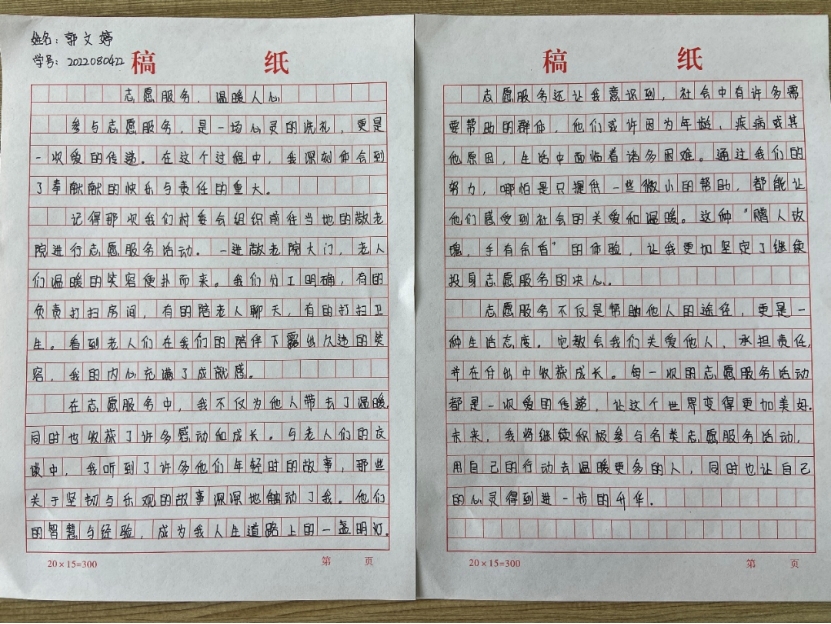 姓名：郭文婷
学号：2022080422
稿 纸
志愿服务，温暖人心
参与志愿服务，是一场心灵的洗礼，更是
一次爱的传递。在这个过程中，我深刻体会到
了奉献献的快乐与责任的重大。
记得那次我们村委会组织前往当地的敬老
院进行志愿服务活动。一进敬老院大门，老人
们温暖的笑容便扑面而来。我们分工明确，有的
负责打扫房间，有的陪老人聊天，有的打扫卫
生。看到老人们在我们的陪伴下露出久违的笑
容，我的内心充满了成就感。
在志愿服务中，我不仅为他人带去了温暖，
同时也收获了许多感动和成长。与老人们的交
谈中，我听到了许多他们年轻时的故事，那些
关于坚韧与乐观的故事深深地触动了我。他们
的智慧与经验，成为我人生道路上的一盏明灯。
20×15=300
第 页
稿 纸
志愿服务还让我意识到，社会中有许多需
要帮助的群体，他们或许因为年龄、疾病或其
他原因，生活中面临着诸多困难。通过我们的
努力，哪怕是只提供一些微小的帮助，都能让
他们感受到社会的关爱和温暖。这种“赠人玫
瑰，手有余香”的体验，让我更加坚定了继续
投身志愿服务的决心。
志愿服务不仅是帮助他人的途径，更是一
种生活态度。它教会我们关爱他人、承担责任，
并在付出中收获成长。每一次的志愿服务活动
都是一次爱的传递，让这个世界变得更加美好。
未来，我将继续积极参与各类志愿服务活动，
用自己的行动去温暖更多的人，同时也让自己
的心灵得到进一步的升华.
20×15=300
第 页